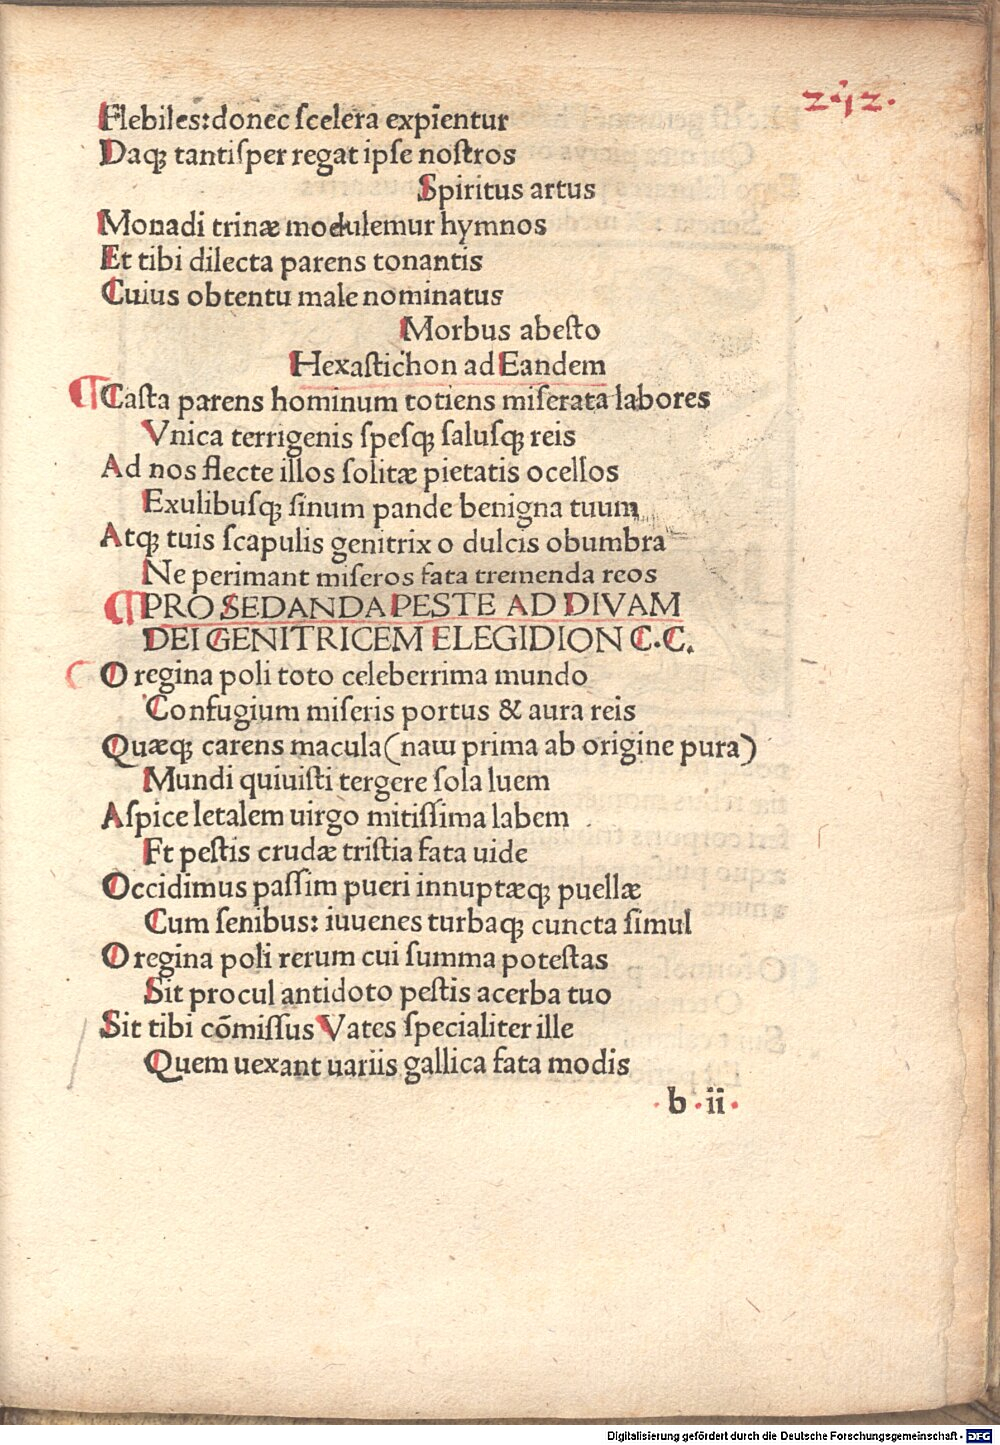 242.
Flebiles: donec ſcelera expientur
Daqꝫ tantiſper regat ipſe noſtros
Spiritus artus
Monadi trinæ modulemur hymnos
Et tibi dilecta parens tonantis
Cuius obtentu male nominatus
Morbus abeſto
Hexaſtichon ad Eandem
¶ Caſta parens hominum totiens miſerata labores
Vnica terrigenis ſpeſqꝫ ſaluſqꝫ reis
Ad nos flecte illos ſolitæ pietatis ocellos
Exulibuſqꝫ ſinum pande benigna tuum
Atqꝫ tuis ſcapulis genitrix o dulcis obumbra
Ne perimant miſeros fata tremenda reos
¶ PRO SEDANDA PESTE AD DIVAM
DEI GENITRICEM ELEGIDION C.C.
O regina poli toto celeberrima mundo
Confugium miſeris portus & aura reis
Quæqꝫ carens macula (nam prima ab origine pura)
Mundi quiuiſti tergere ſola luem
Aſpice letalem uirgo mitiſſima labem
Et peſtis crudæ triſtia fata uide
Occidimus paſſim pueri innuptæqꝫ puellæ
Cum ſenibus: iuuenes turbaqꝫ cuncta ſimul
O regina poli rerum cui ſumma poteſtas
Sit procul antidoto peſtis acerba tuo
Sit tibi cōmiſſus Vates ſpecialiter ille
Quem uexant uariis gallica fata modis
b ii
Digitalisierung gefördert durch die Deutsche Forschungsgemeinschaft - DFG